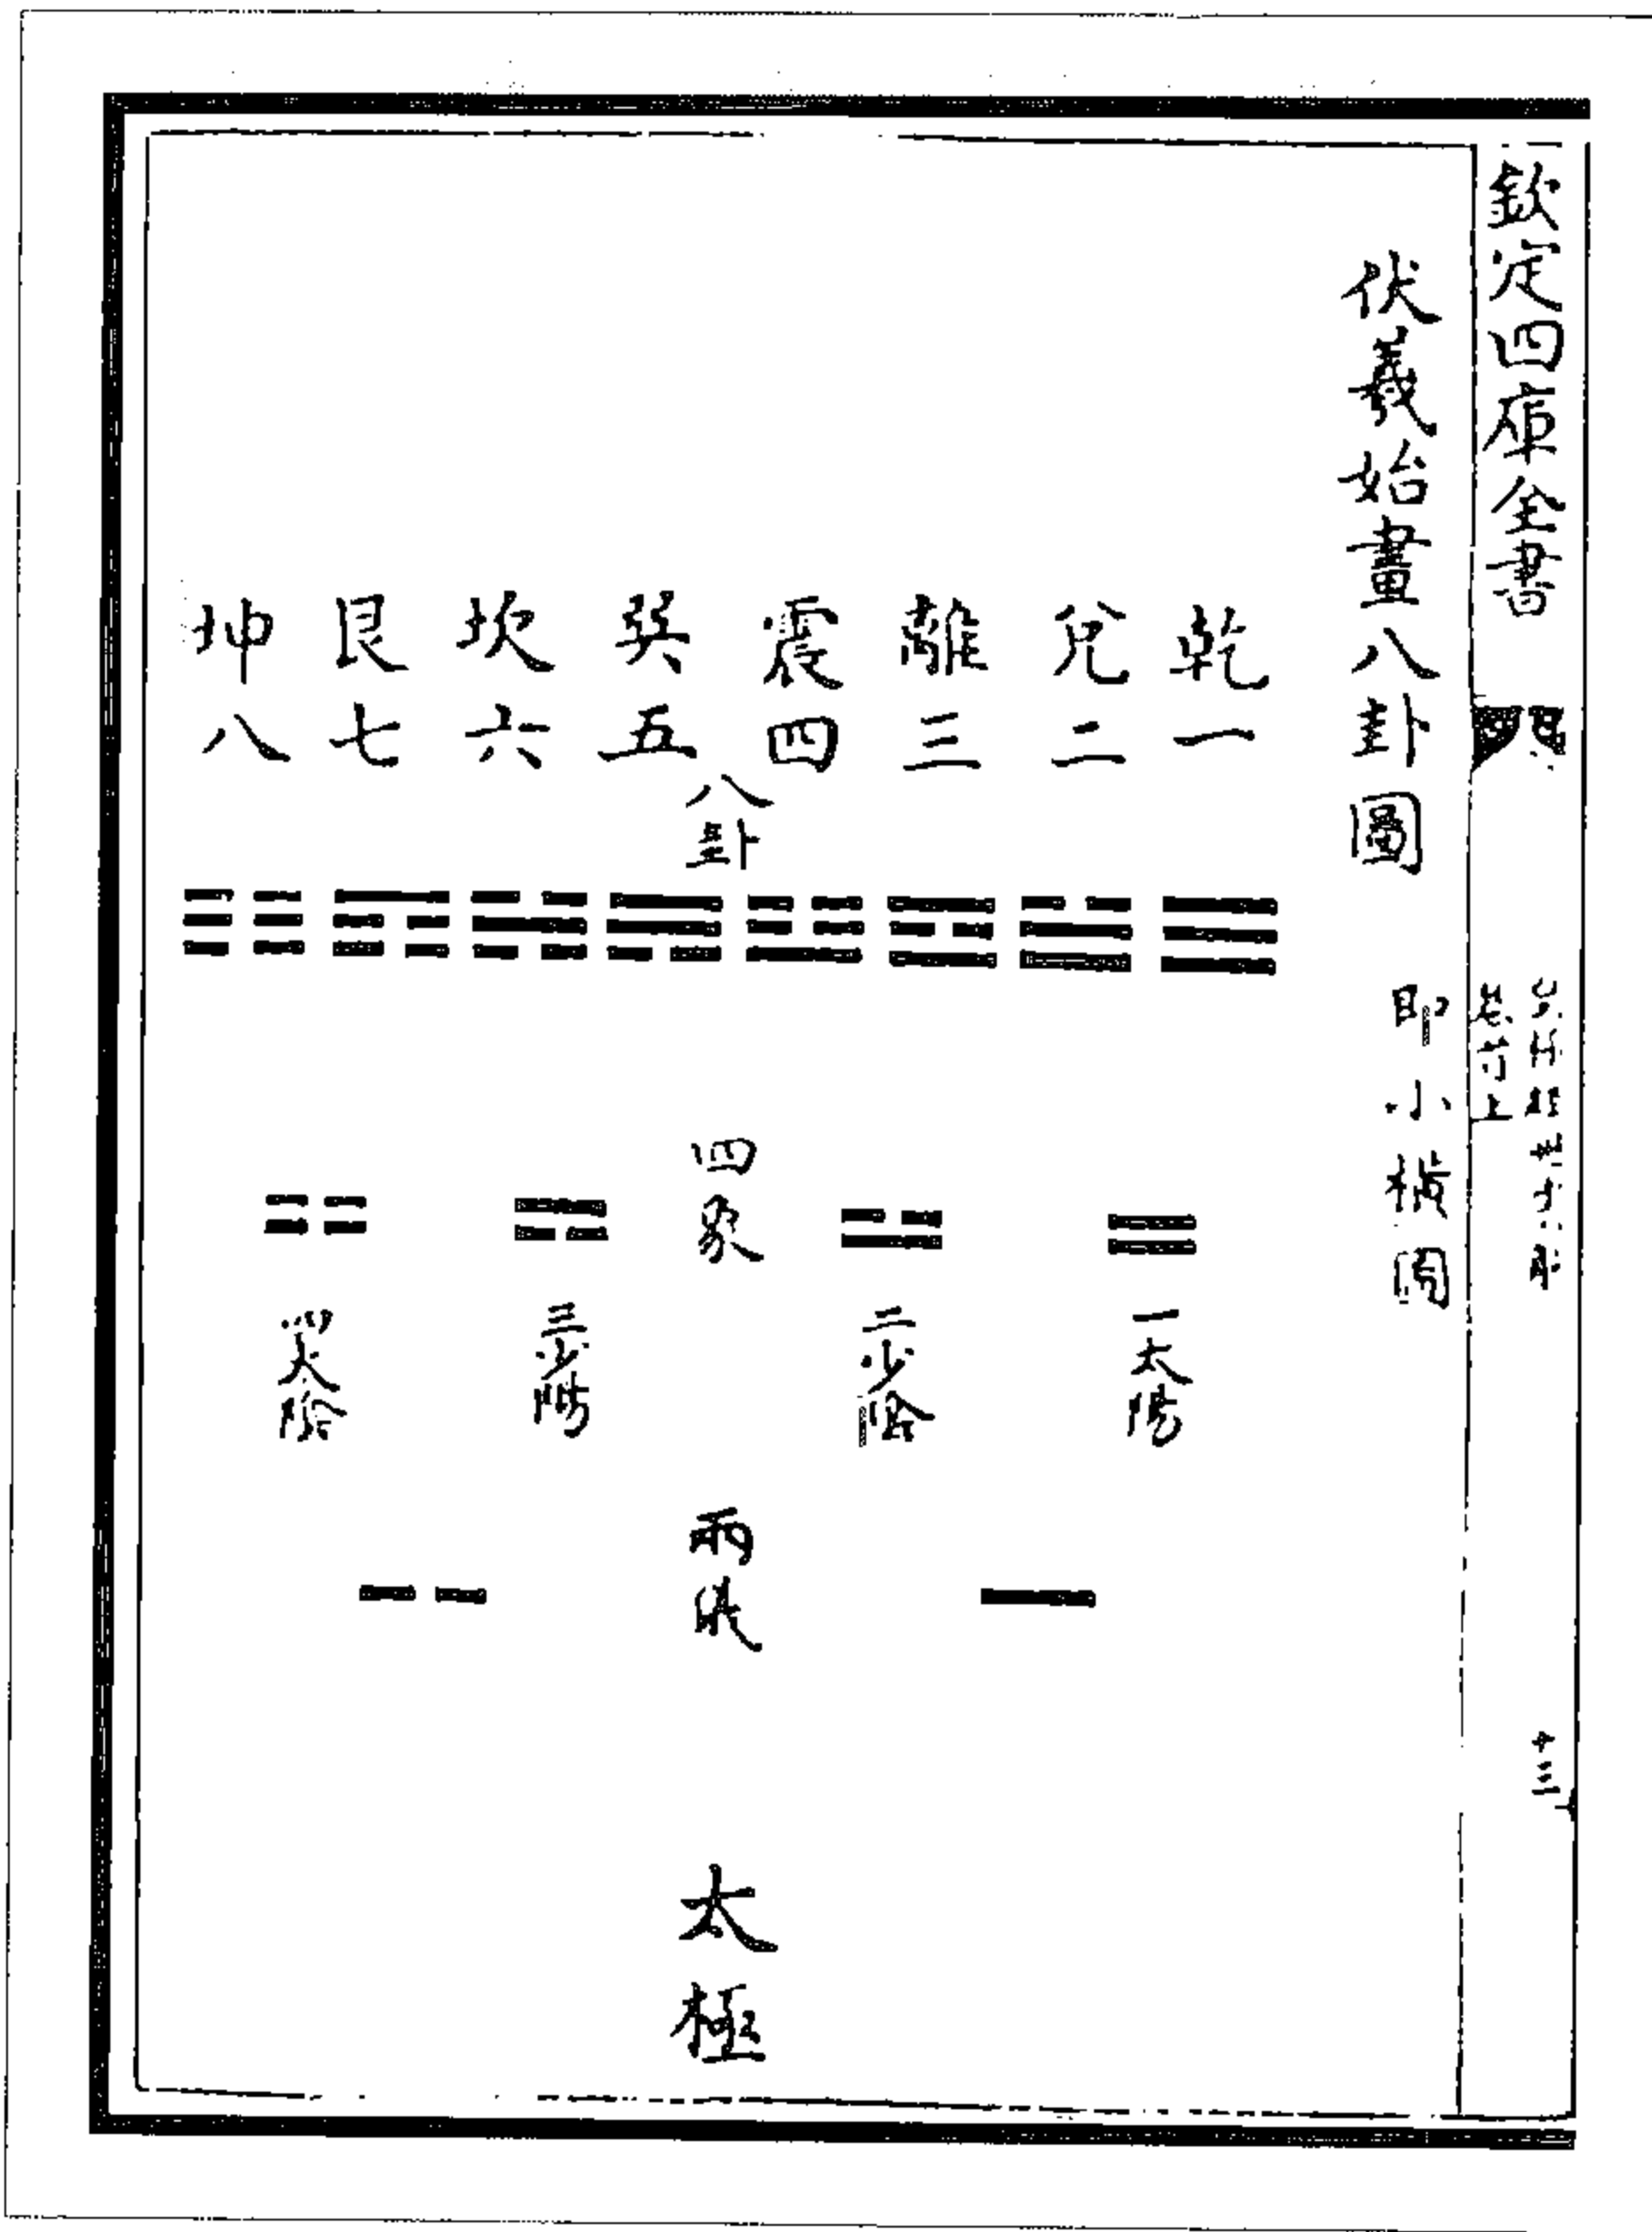 欽定四庫全書
卷首上
十三
伏羲始畫八卦圖
即小橫圖
乾一
兌二
離三
震四
巽五
坎六
艮七
坤八
八卦
四象
一太陽
二少陰
三少陽
四太陰
兩儀
太極